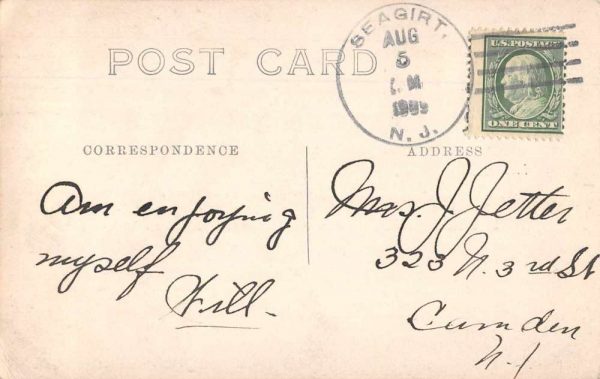 POST CARD
SEAGIRT,
AUG
5
1909
N. J.
U.S. POSTAGE
ONE CENT
CORRESPONDENCE
ADDRESS
Am enjoying
myself
Will.
Mrs. J. Jetter
323 N. 3rd St
Camden
N.J